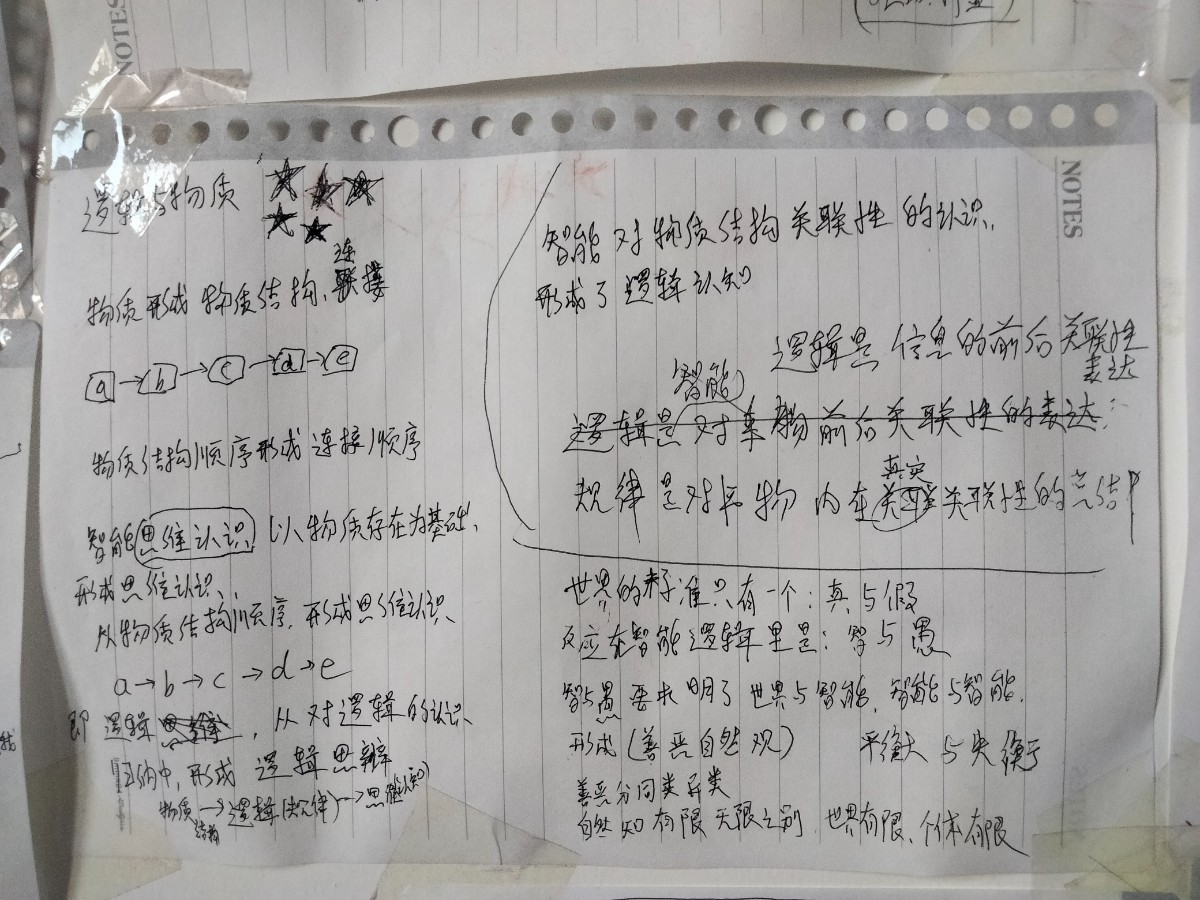 NOTES
NOTES
逻辑与物质
物质形成物质结构,连接
a→b→c→d→e
物质结构顺序形成连接顺序
智能思维认识以物质存在为基础、
形成思维认识、
从物质结构顺序,形成思维认识、
a→b→c→d→e
即逻辑,从对逻辑的认识
归纳中,形成逻辑思辨
物质结构→逻辑(规律)→思维认知
智能对物质结构关联性的认识,
形成了逻辑认知
逻辑是信息的前后关联性
表达
智能
逻辑是对事物前后关联性的表达:
真实
规律是对事物内在关联性的总结
世界的标准只有一个:真与假
反应在智能逻辑里是:智与愚
智与愚要求明了世界与智能,智能与智能,
形成(善恶自然观) 平衡 与失衡
善恶分同类异类
自然知有限无限之别,世界有限、个体有限